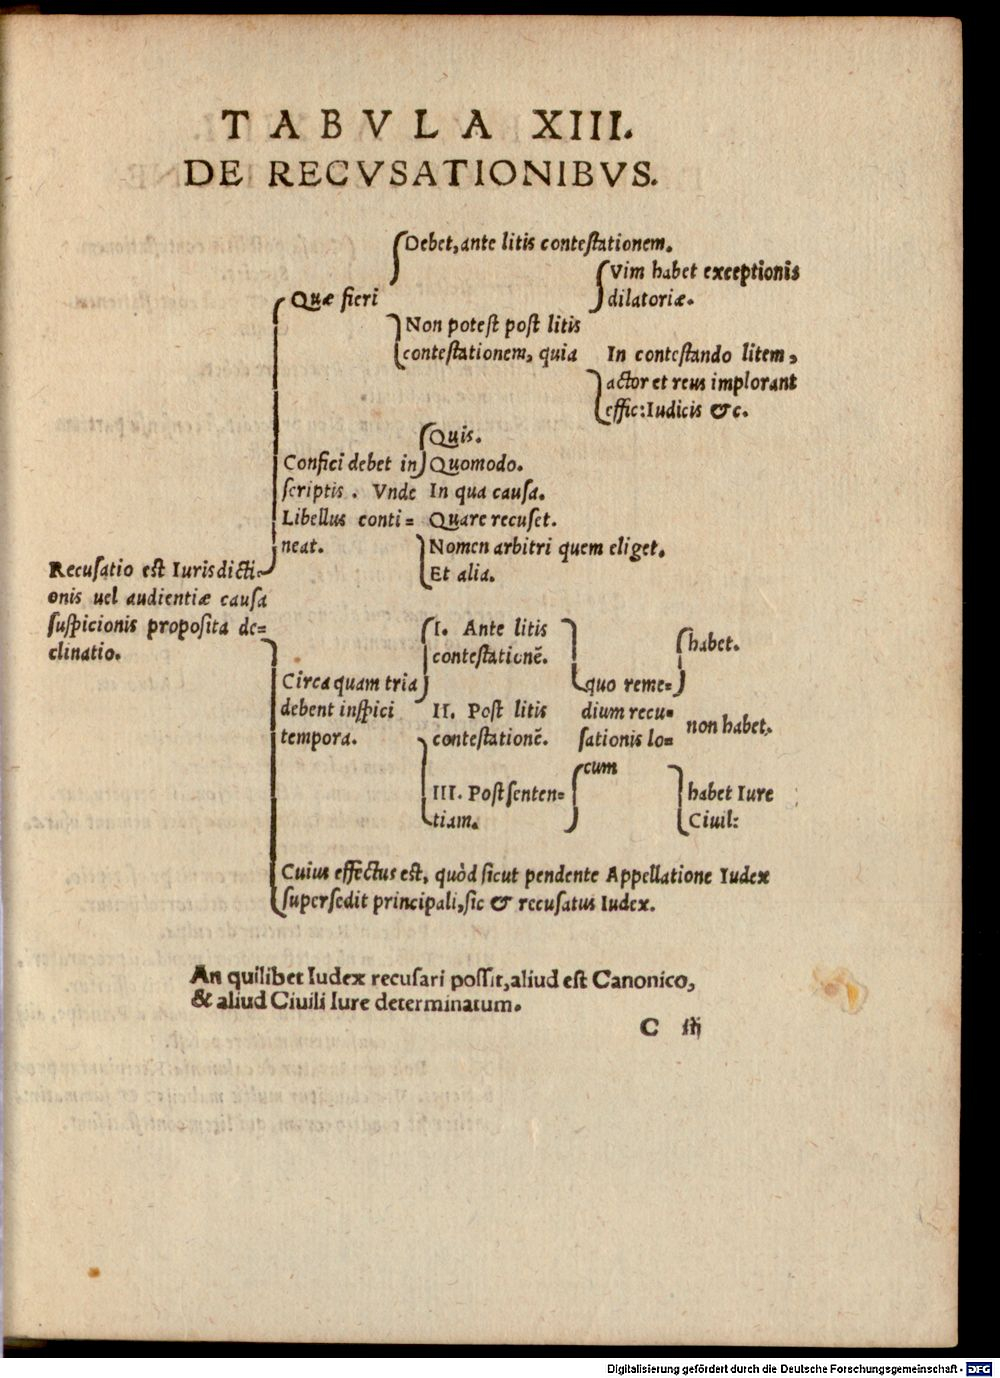 TABVLA XIII.
DE RECVSATIONIBVS.
Recusatio est Iurisdicti-
onis uel audientiæ causa
suspicionis proposita de=
clinatio.
Quæ fieri
Debet, ante litis contestationem.
Non potest post litis
contestationem, quia
Vim habet exceptionis
dilatoriæ.
In contestando litem,
actor et reus implorant
effic: Iudicis &c.
Confici debet in
scriptis. Vnde
Libellus conti=
neat.
Quis.
Quomodo.
In qua causa.
Quare recuset.
Nomen arbitri quem eliget.
Et alia.
Circa quam tria
debent inspici
tempora.
I. Ante litis
contestationẽ.
II. Post litis
contestationẽ.
III. Post senten=
tiam.
quo reme=
dium recu=
sationis lo=
cum
habet.
non habet.
habet Iure
Ciuil:
Cuius effectus est, quòd sicut pendente Appellatione Iudex
supersedit principali, sic & recusatus Iudex.
An quilibet Iudex recusari possit, aliud est Canonico,
& aliud Ciuili Iure determinatum.
C iij
Digitalisierung gefördert durch die Deutsche Forschungsgemeinschaft - DFG